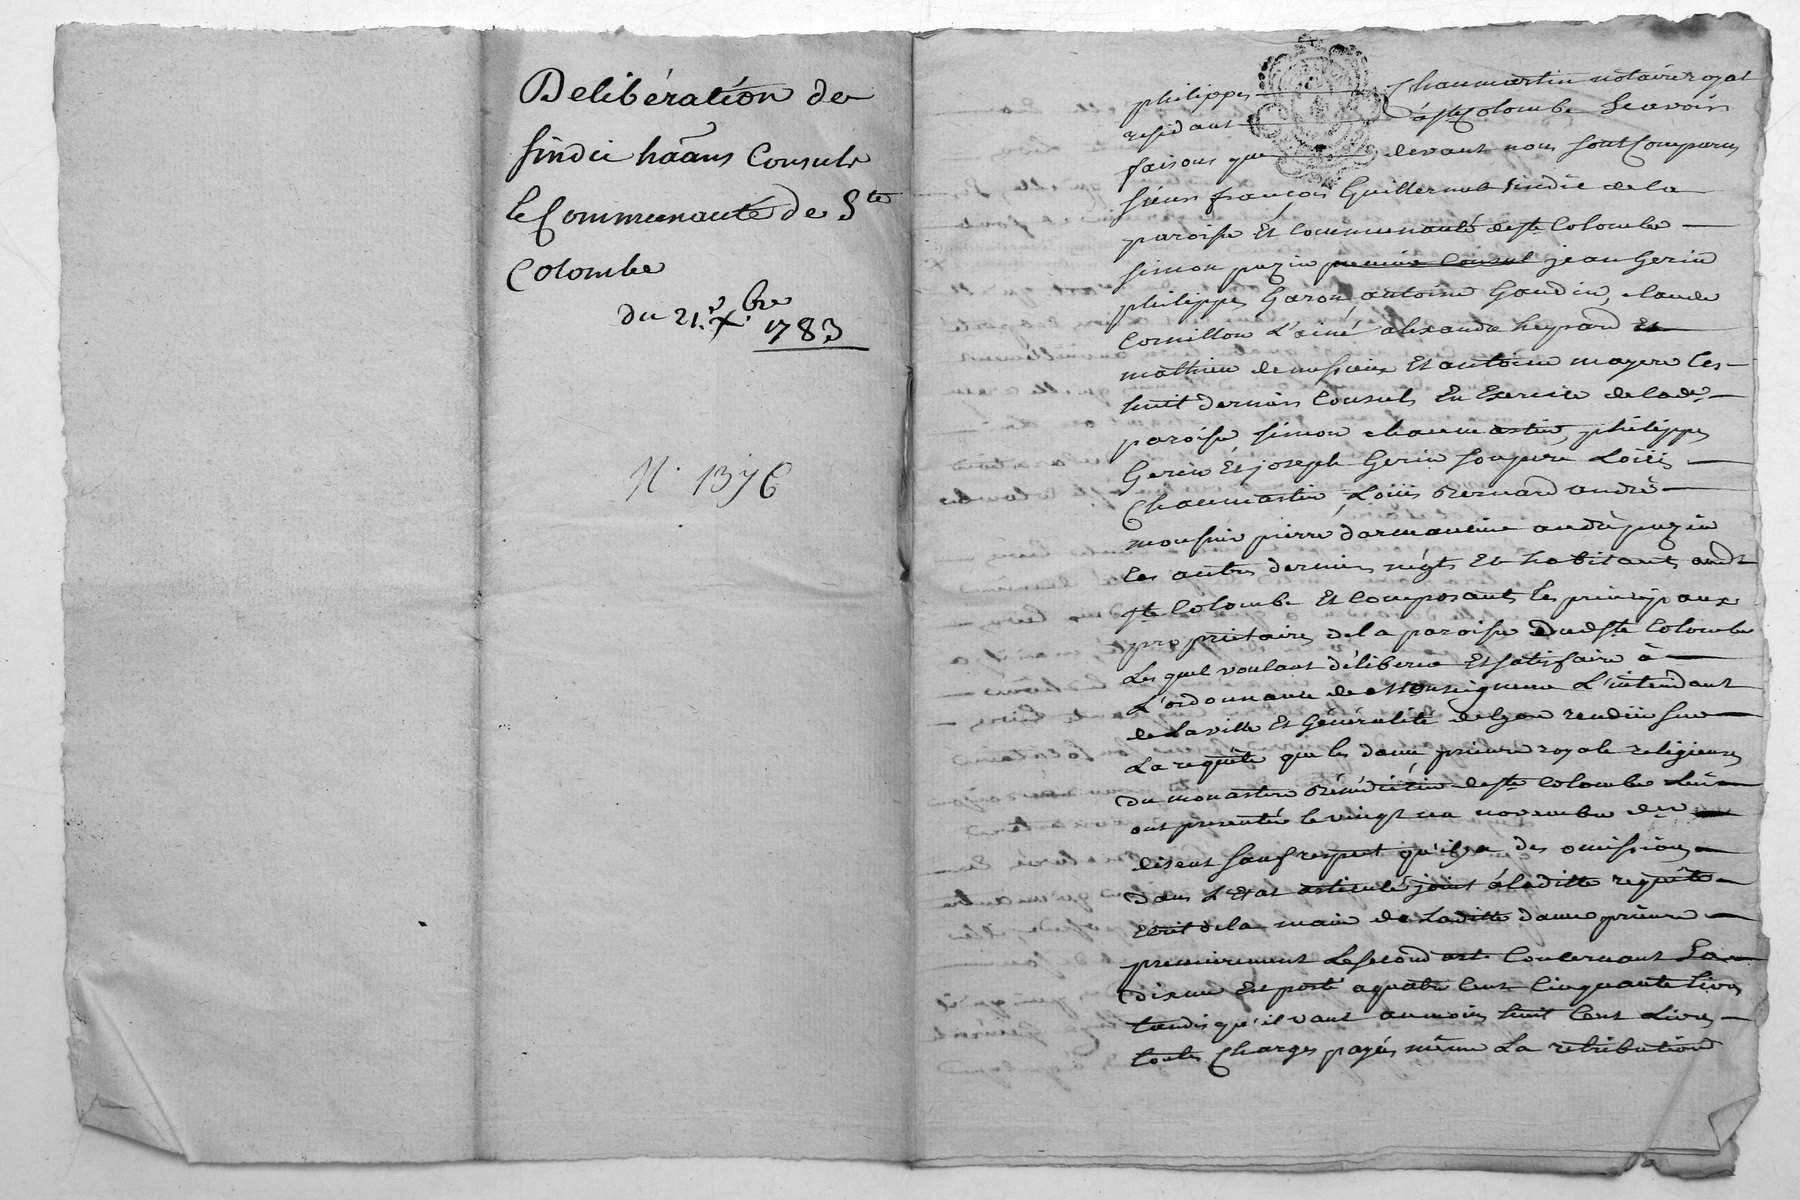 Delibération de
sindic hãans Consuls
le Communauté de Ste
Colombe
du 21.e Xbre
1783
N. 1376
philippe Chaumartin notaire royal
residant à ste Colombe Scavoir
faisons que devant nous sont Comparus
sieurs françois Guillermet sindic de la
paroisse Et Communauté de ste Colombe
simon puzin premier Consul jean Gerin
philippe Garon antoine Gaudin, claude
Cornillon L'ainé alexandre heyrard Et
mathieu demessieux Et antoine mayere les
huit derniers Consuls En Exercice de lade
paroisse, simon chaumartin, philippe
Gerin Et joseph Gerin son pere Loüis
Chaumartin, Loüis Bernard andré
mousier pierre darmancier andré puzin
les autres derniers négts Et habitants audt
ste Colombe Et Composants les principaux
proprietaires de la paroisse dudt ste Colombe
Lesquel voulant délibérer Et satisfaire à
L'ordonnance de Monseigneur L'intendant
de La ville Et Généralité de lyon rendüe sur
La requête que les dame prieure royale religieuses
du monastere Bénédictin de ste Colombe Lui
ont presentée le vingt un novembre der
disent sauf respect qu'il y a des omissions
dans L'Etat articulé joint à laditte requête
Ecrit de la main de Laditte dame prieure
premierement Le second art. Concernant La
dixme Est porté a quatre Cent Cinquante Livres
tandis qu'il vaut au moins huit Cent Livres
toutes Charges payés même La retribution